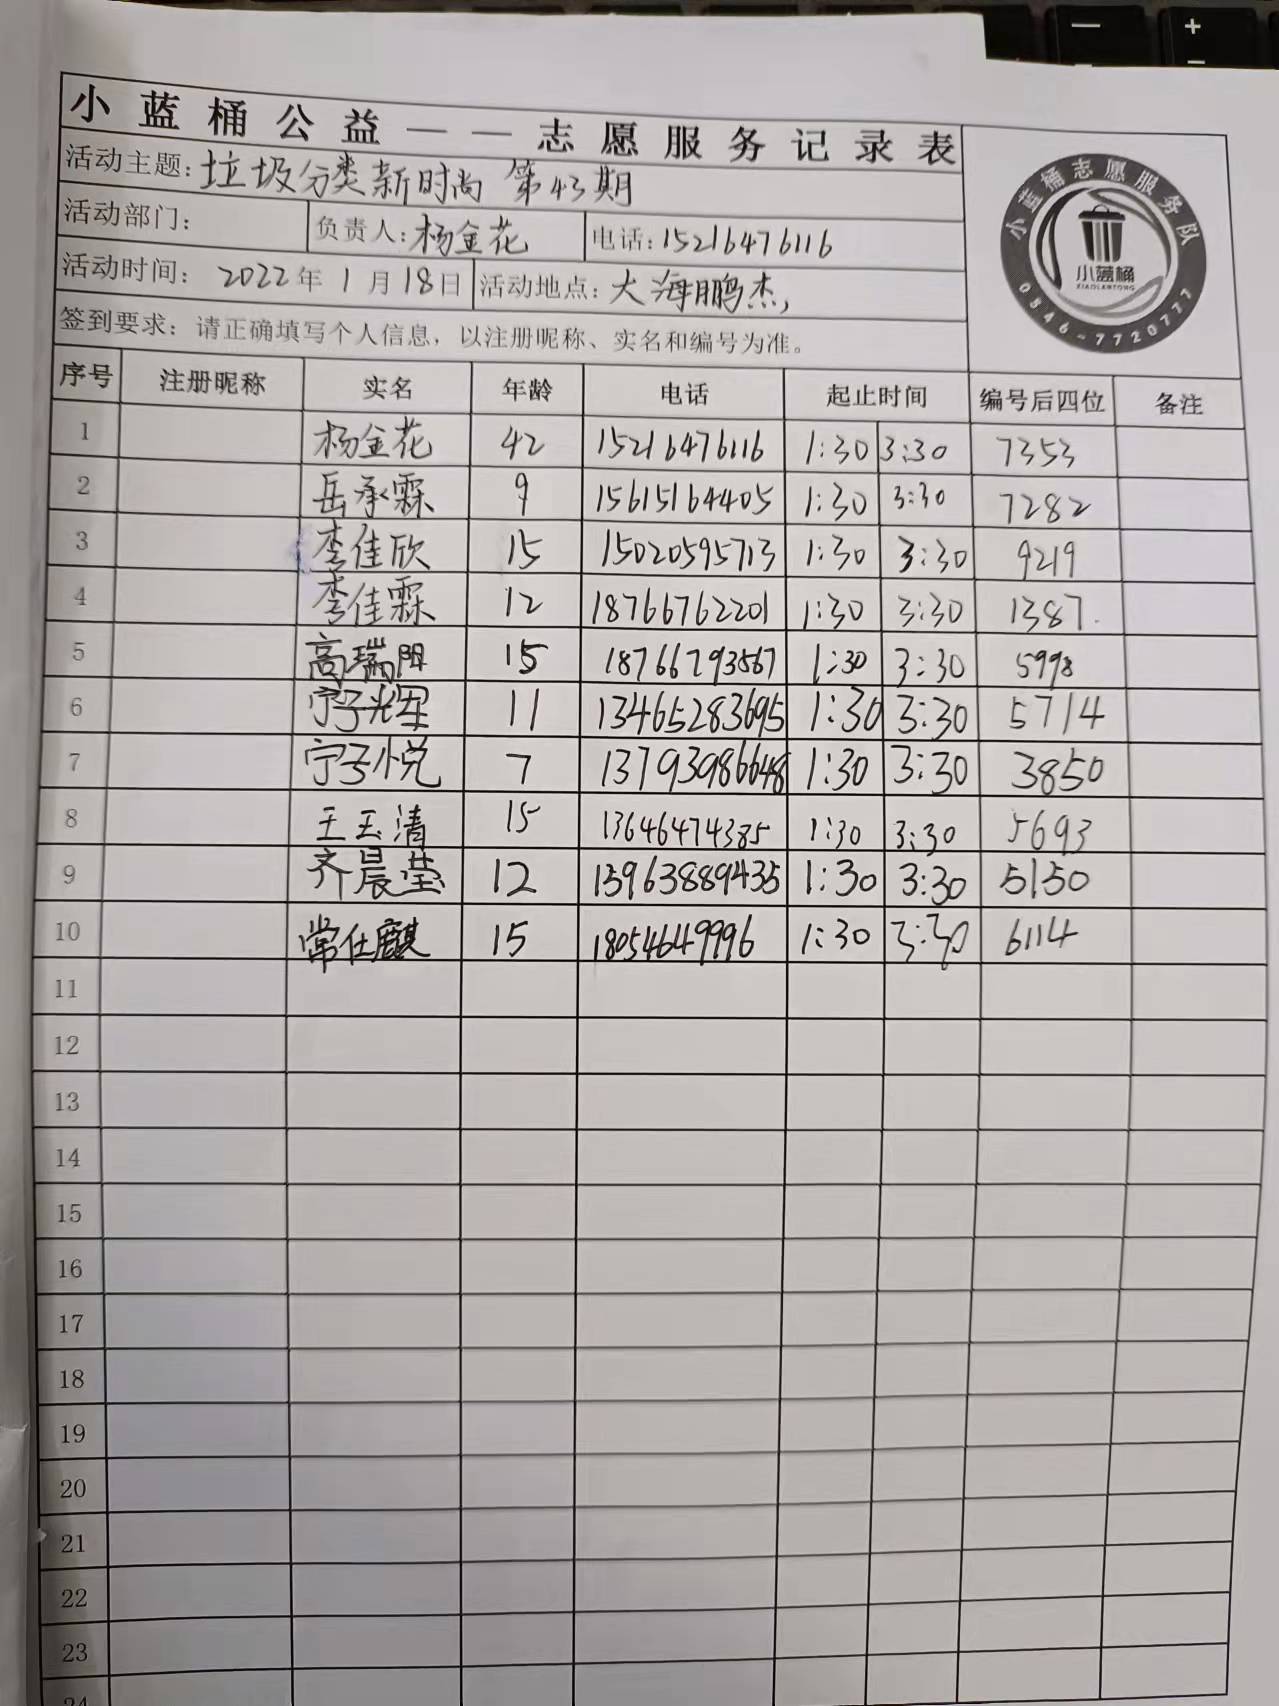 小蓝桶公益——志愿服务记录表
活动主题: 垃圾分类新时尚 第43期
活动部门: 负责人: 杨金花 电话: 15216476116
活动时间: 2022年1月18日 活动地点: 大海鹏杰,
签到要求: 请正确填写个人信息，以注册昵称、实名和编号为准。
小蓝桶志愿服务队
小蓝桶
XIAOLANTONG
0546-7720777
序号 注册昵称 实名 年龄 电话 起止时间 编号后四位 备注
1 杨金花 42 15216476116 1:30 3:30 7353
2 岳承霖 9 15615164405 1:30 3:30 7282
3 李佳欣 15 15020595713 1:30 3:30 9219
4 李佳霖 12 18766762201 1:30 3:30 1387.
5 高瑞阳 15 18766793567 1:30 3:30 5998
6 宁子光军 11 13465283695 1:30 3:30 5714
7 宁子悦 7 13793986648 1:30 3:30 3850
8 王玉清 15 13646474385 1:30 3:30 5693
9 齐晨莹 12 13963889435 1:30 3:30 5150
10 常仕麒 15 18054649996 1:30 3:30 6114
11
12
13
14
15
16
17
18
19
20
21
22
23
24